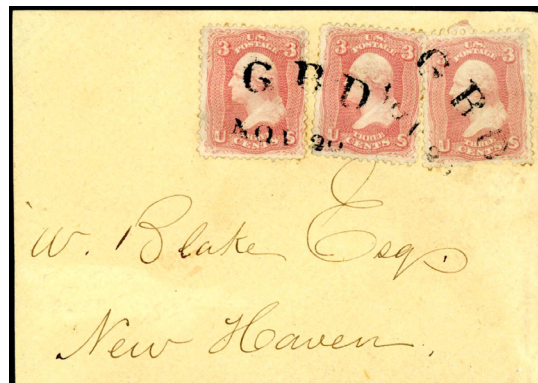 3 U.S. POSTAGE 3
U THREE CENTS S
3 U.S. POSTAGE 3
U THREE CENTS S
3 U.S. POSTAGE 3
U THREE CENTS S
G B D
W. Blake Esq.
New Haven.